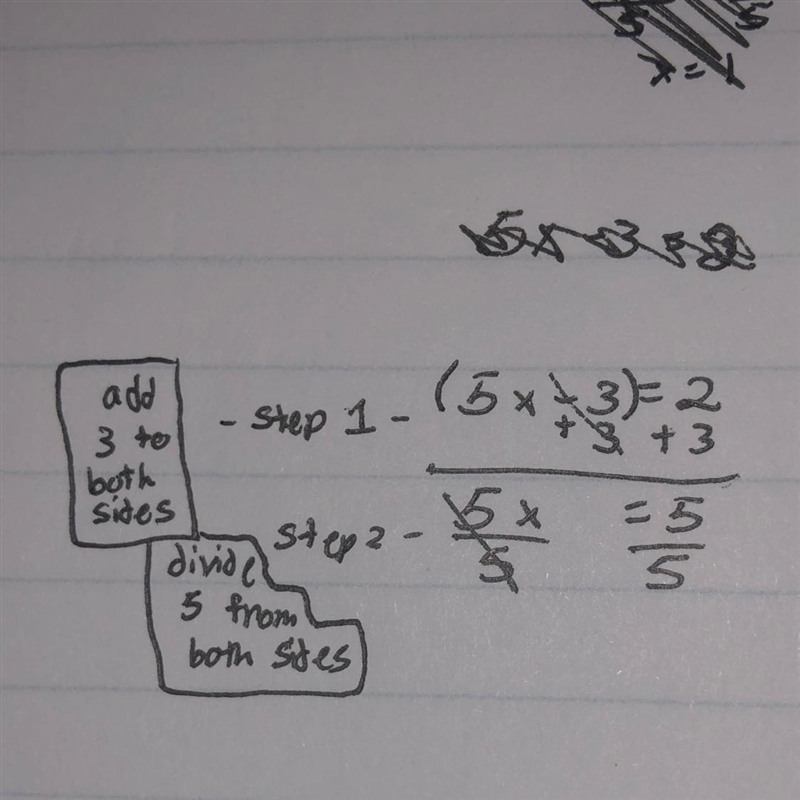 x = 1
5x - 3 = 2
add
3 to
both
sides
- step 1 - (5x - 3) = 2
+ 3 + 3
step 2 - 5x = 5
5 5
divide
5 from
both sides